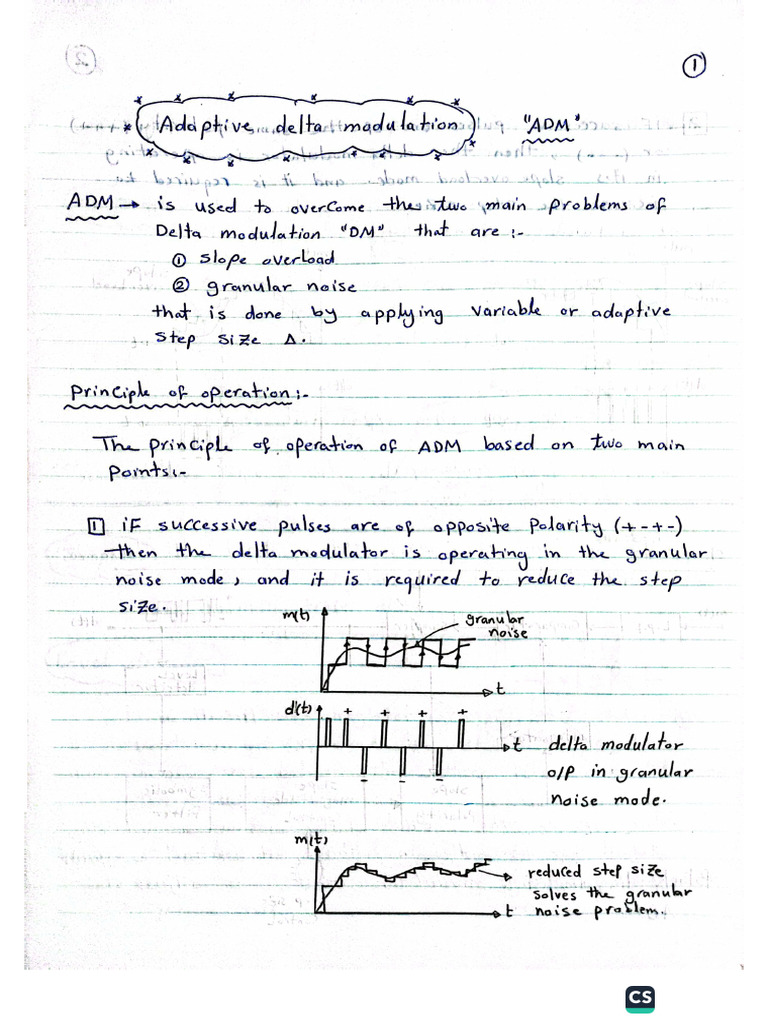 ①
Adaptive delta modulation "ADM"
ADM → is used to overcome the two main problems of
Delta modulation "DM" that are :-
① slope overload
② granular noise
that is done by applying variable or adaptive
step size Δ.
principle of operation:-
The principle of operation of ADM based on two main
points:-
1 if successive pulses are of opposite polarity (+-+-)
then the delta modulator is operating in the granular
noise mode, and it is required to reduce the step
size.
m(t)
granular
noise
t
d'(t)
+ + + +
t
- - -
delta modulator
o/p in granular
noise mode.
m(t)
t
reduced step size
solves the granular
noise problem.
CS